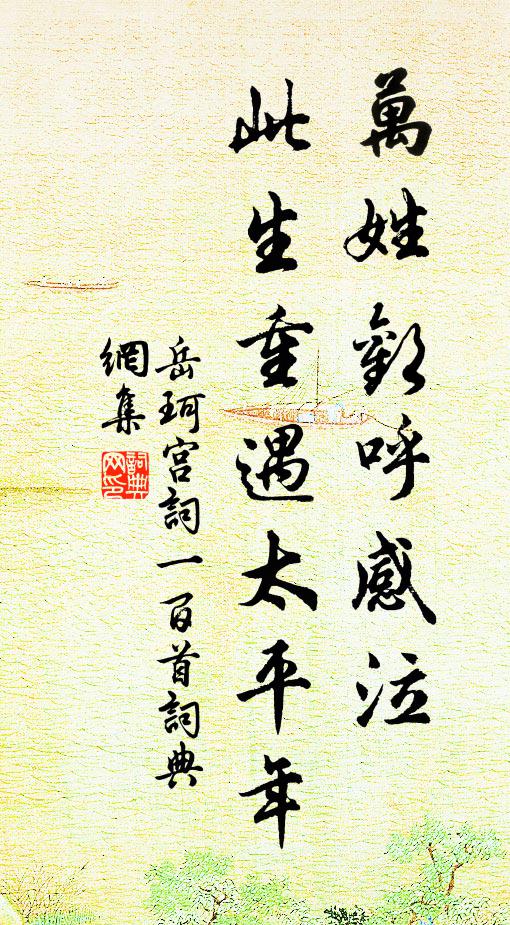 萬姓歡呼感泣
此生重遇太平年
岳珂宮詞一百首詞典
網集
詞典
网印